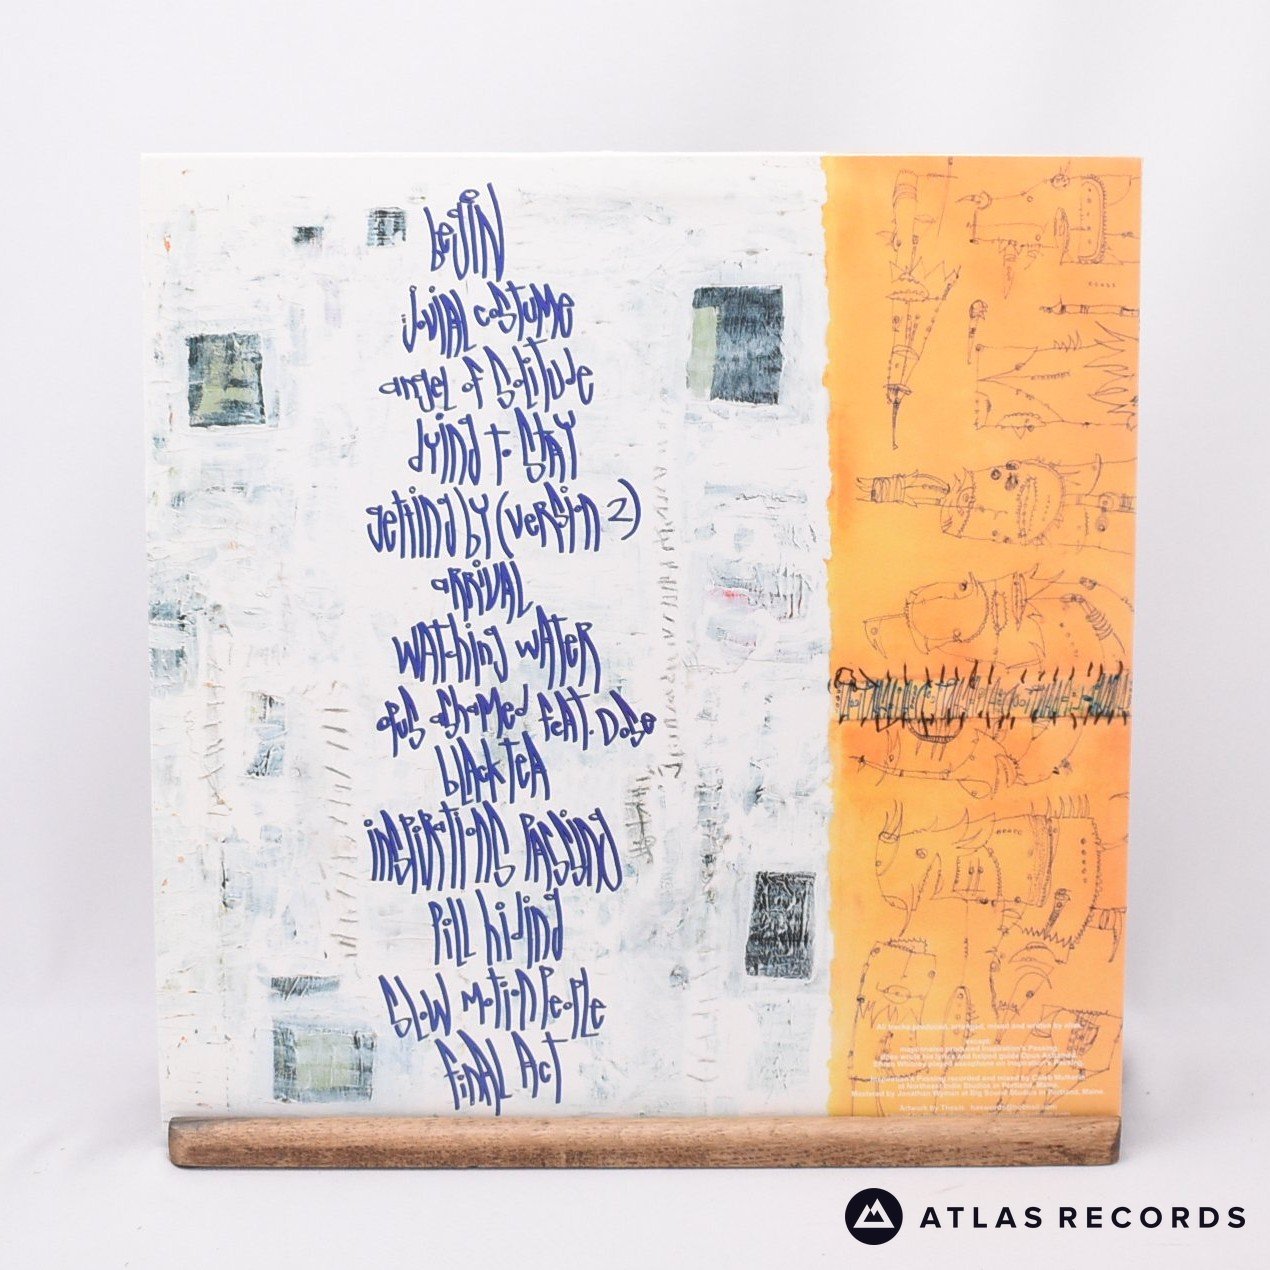 begin
jovial costume
angel of solitude
dying to stay
getting by (version 2)
arrival
watching water
opus ashamed feat. Dose
black tea
inspirations passing
pill hiding
slow motion people
final act
All tracks produced, arranged, mixed and written by
except:
mayonnaise produced Inspiration's Passing
Dose wrote his lyrics and helped guide Opus Ashamed
played saxophone on Inspiration's Passing
Inspiration's Passing recorded and mixed by
at Northeast
Mastered by Jonathan Wyman at Big Sound Studios in Portland, Maine.
Artwork by Thesis
ATLAS RECORDS